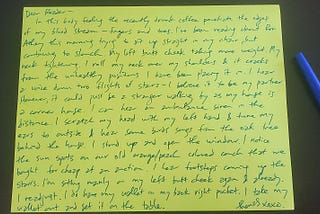 Dear Reader -
In this body feeling the recently drunk coffee penetrate the edges
of my blood stream - fingers and toes. I've been reading about
this morning trying to sit up straight in my chair, but
continuing to slouch. My left butt cheek taking more weight. My
neck tightening. I roll my neck over my shoulders & it cracks
from the unhealthy positions I have been placing it in. I hear
a voice down two flights of stairs - I believe it to be my partner
However, it could just be a stranger walking by as my house is
a corner house. I can hear an ambulance siren in the
distance. I scratch my head with my left hand & tune my
ears to outside & hear some birds songs from the oak tree
behind the house. I stand up and open the window. I notice
the sun spots on our old orange/peach colored couch that we
bought for cheap at an auction. I hear footsteps coming up the
stairs. I'm sitting mainly on my left butt cheek again & already
I readjust. I do have my wallet in my back right pocket. I take my
wallet out and set it on the table.